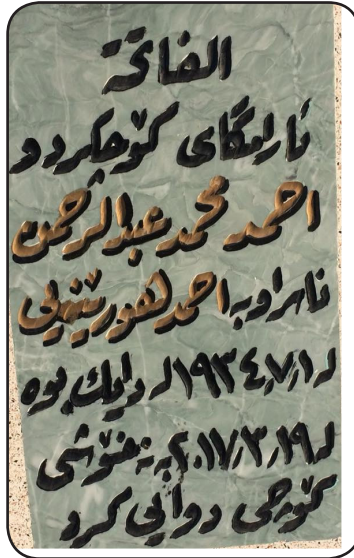 الفاتحة
ئارامگای کۆچکردوو
احمد محمد عبدالرحمن
ناسراو بە احمد هەورێتنیی
لە ١٩٣٤/٧/١ لە دایک بوە
لە ٢٠١٧/٣/١٩ بە نەخۆشی
کۆچی دوایی کرد